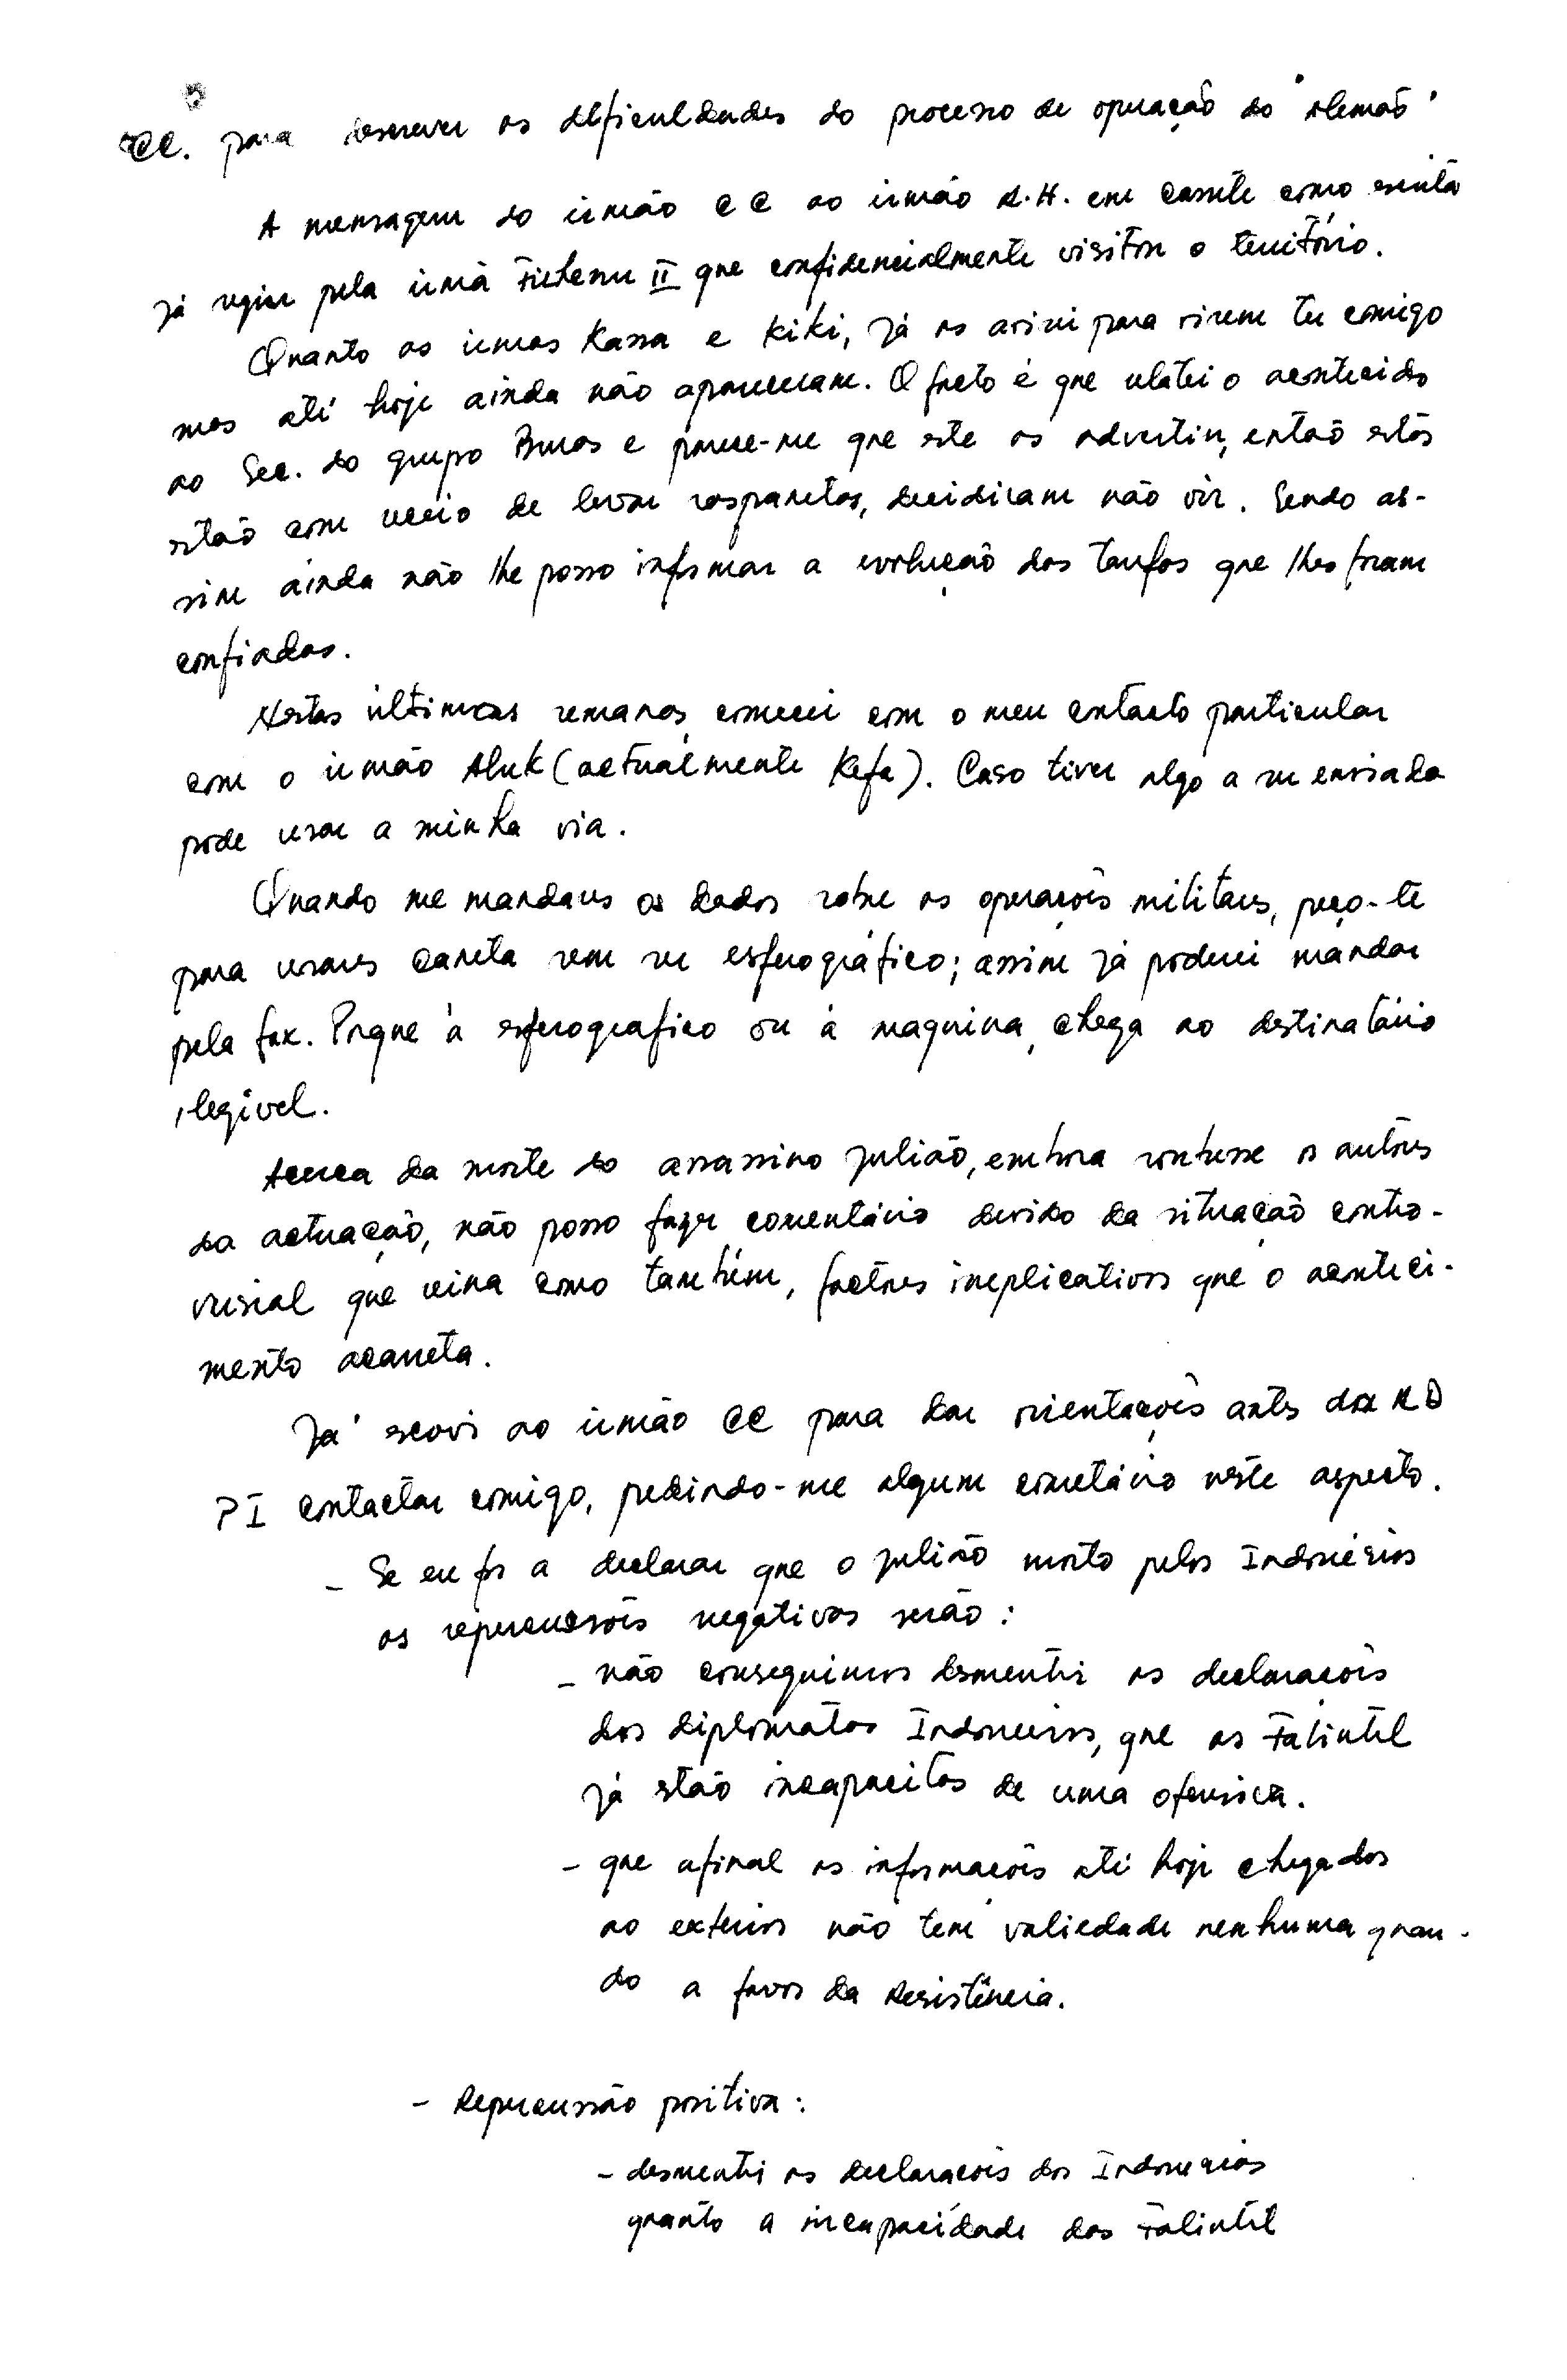 CC. para descrever as dificuldades do processo de operação do "alemão"
A mensagem do irmão CC ao irmão R.H. em cassete como escrita
já seguiu pela irmã II que confidencialmente visitou o território.
Quanto as irmas Kassa e Kiki, já as avisei para virem ter comigo
mas até hoje ainda não apareceram. O facto é que relatei o acontecido
ao Sec. do grupo Buras e parece-me que este as advertiu, então estas
estão com receio de levar raspanetas, decidiram não vir. Sendo as-
sim ainda não lhe posso informar a evolução das tarefas que lhes foram
confiadas.
Nestas últimas semanas, comecei com o meu contacto particular
com o irmão Aluk (actualmente Kefa). Caso tiver algo a ser enviado
pode usar a minha via.
Quando me mandares os dados sobre as operações militares, peço-te
para usares caneta sem ser esferográfico; assim já poderei mandar
pela fax. Porque à esferografico ou à maquina, chega ao destinatário
ilegível.
Acerca da morte do assassino Julião, embora soubesse os autores
da actuação, não posso fazer comentário devido da situação contro-
versial que reina como também, factores implicativos que o aconteci-
mento acarreta.
Já escrevi ao irmão CC para dar orientações antes da RD
PI contactar comigo, pedindo-me algum cometário neste aspecto.
- Se eu for a declarar que o Julião morto pelos Indonésios
as repercussões negativas serão:
- não conseguimos desmentir as declarações
dos diplomatas Indonésios, que as Falintil
já estão incapacitas de uma ofensiva.
- que afinal as informações até hoje chegadas
ao exterior não tem valiedade nenhuma quan-
do a favor da Resistência.
- Repercussão positiva:
- desmentir as declarações dos Indonésios
quanto a incapacidade das Falintil